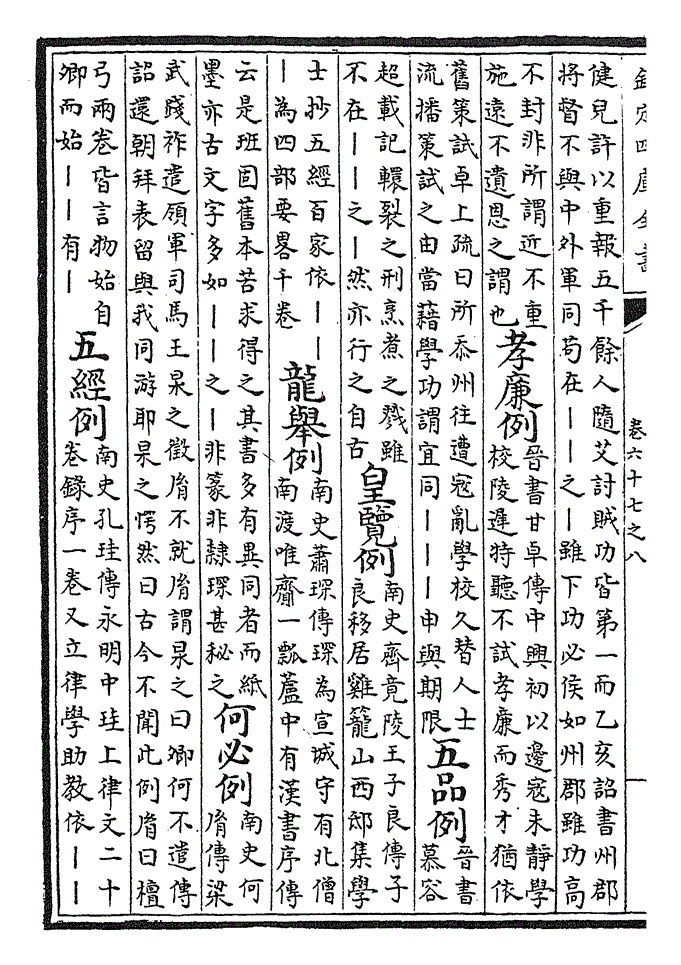 欽定四庫全書
卷六十七之八
健兒許以重報五千餘人隨艾討賊功皆第一而乙亥詔書州郡
將督不與中外軍同苟在丨丨之丨雖下功必侯如州郡雖功高
不封非所謂近不重
施遠不遺恩之謂也
孝廉例
晉書甘卓傳中興初以邊寇未靜學
校陵遲特聽不試孝廉而秀才猶依
舊策試卓上疏曰所忝州往遭寇亂學校久替人士
流播策試之由當藉學功謂宜同丨丨丨申與期限
五品例
晉書
慕容
超載記轘裂之刑烹煮之戮雖
不在丨丨之丨然亦行之自古
皇覽例
南史齊竟陵王子良傳子
良移居雞籠山西邸集學
士抄五經百家依丨丨
丨為四部要畧千卷
龍舉例
南史蕭琛傳琛為宣城守有北僧
南渡唯齎一瓢蘆中有漢書序傳
云是班固舊本苦求得之其書多有異同者而紙
墨亦古文字多如丨丨之丨非篆非隸琛甚秘之
何必例
南史何
胤傳梁
武踐祚遣領軍司馬王杲之徵胤不就胤謂杲之曰卿何不遣傳
詔還朝拜表留與我同游耶杲之愕然曰古今不聞此例胤曰檀
弓兩卷皆言物始自
卿而始丨丨有丨
五經例
南史孔珪傳永明中珪上律文二十
卷錄序一卷又立律學助教依丨丨